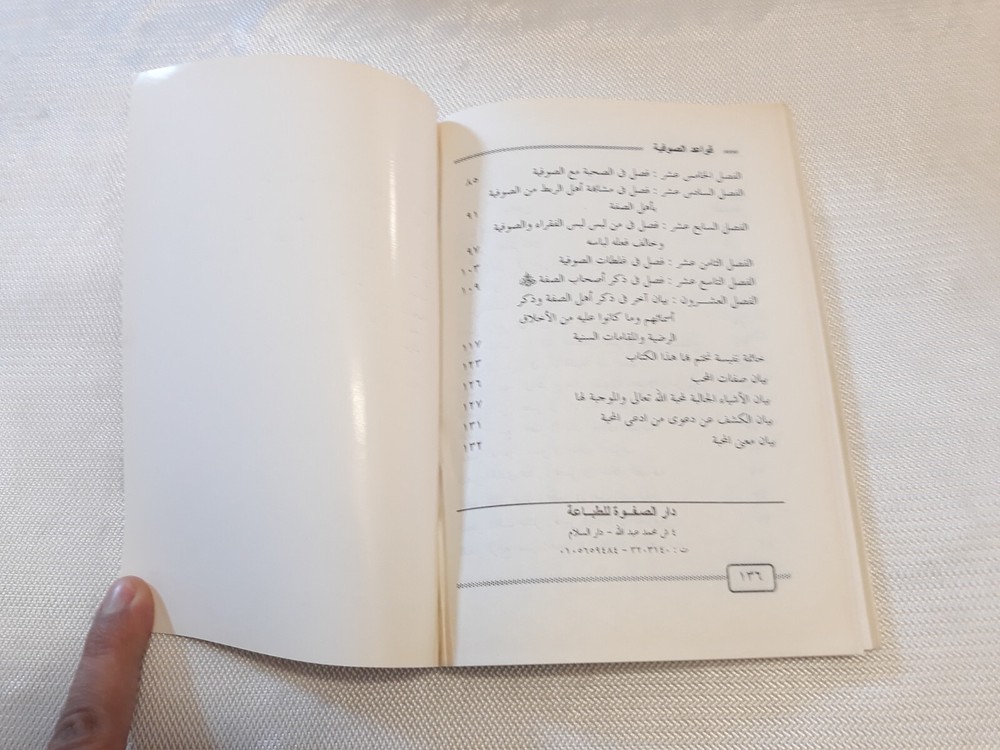 قواعد الصوفية
الفصل الخامس عشر : فصل فى الصحبة مع الصوفية
٨٥
الفصل السادس عشر : فصل فى مشابهة أهل الربط من الصوفية
بأهل الصفة
٩١
الفصل السابع عشر : فصل فى من لبس لبس الفقراء والصوفية
وخالف فعله لباسه
٩٧
الفصل الثامن عشر : فصل فى غلطات الصوفية
١٠٣
الفصل التاسع عشر : فصل فى ذكر أصحاب الصفة
١٠٩
الفصل العشـــرون : بيان آخر فى ذكر أهل الصفة وذكر
أسمائهم وما كانوا عليه من الأخلاق
الرضية والمقامات السنية
١١٧
خاتمة نفيسة نختم بها هذا الكتاب
١٢٣
بيان صفات المحب
١٢٦
بيان الأشياء الجالبة لمحبة الله تعالى والموجبة لها
١٢٧
بيان الكشف عن دعوى من ادعى المحبة
١٣١
بيان معنى المحبة
١٣٢
دار الصفوة للطباعة
٤ ش محمد عبد الله – دار السلام
ت : ٣٢٠٣١٤٠ – ٠١٠٥٦٥٩٤٨٤
١٣٦